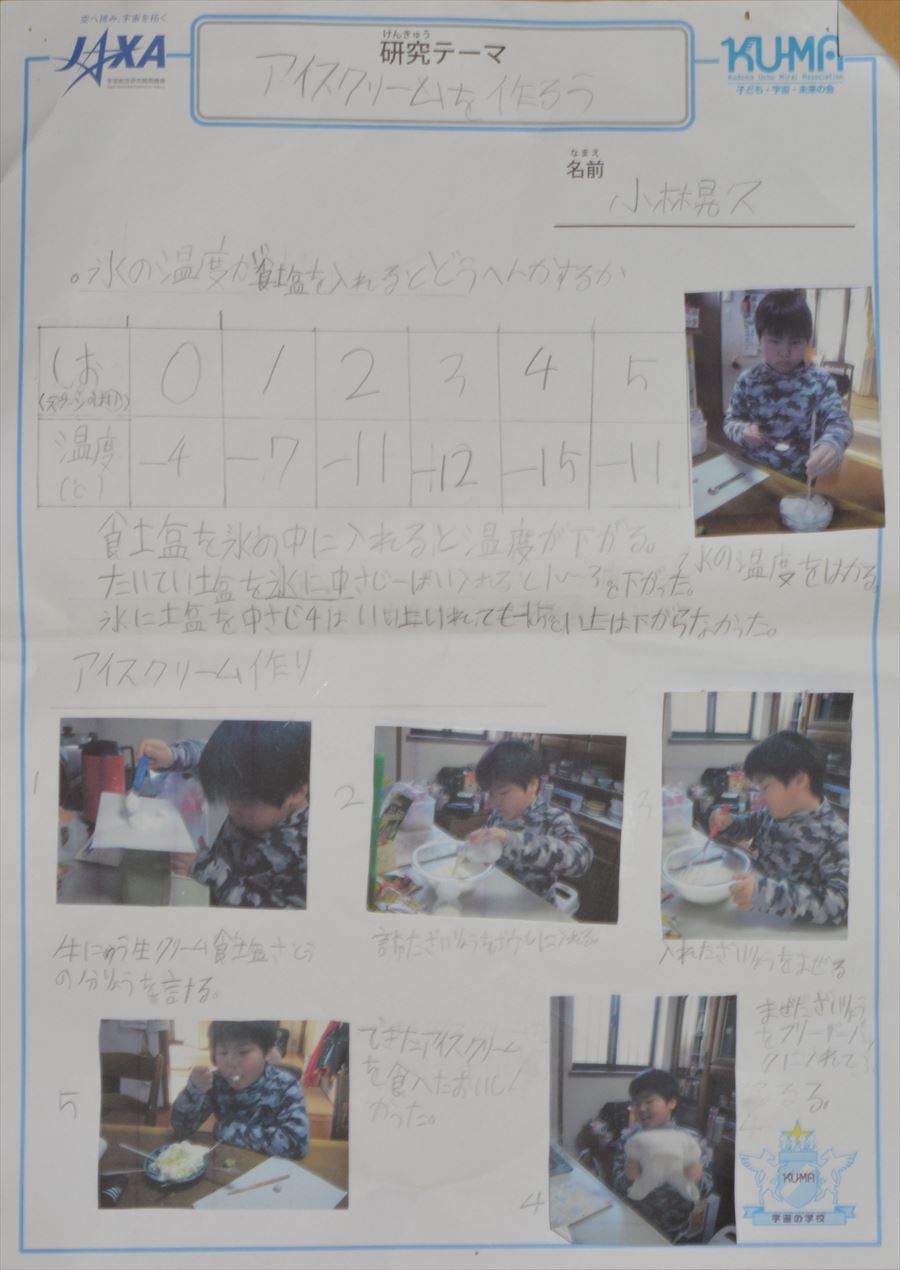 空へ挑み、宇宙を拓く
JAXA
宇宙航空研究開発機構
けんきゅう
研究テーマ
アイスクリームを作ろう
KU-MA
Kodomo Uchu Mirai Association
子ども・宇宙・未来の会
なまえ
名前
小林晃久
。氷の温度が食塩を入れるとどうへんかするか
しお 0 1 2 3 4 5
温度 -4 -7 -11 -12 -15 -11
(℃)
食塩を氷の中に入れると温度が下がる。
氷の温度をはかる。
たいてい塩を氷に中さじ一ぱい入れると1〜3を下がった。
氷に塩を中さじ4はい
アイスクリーム作り
1
2
3
牛にゅう生クリーム食塩さとう
の分りょうを計る。
ざいりょうをボウルに入れる。
入れたざいりょうをまぜる
5
できたアイスクリーム
を食べたおいし
かった。
4
まぜたざいりょう
をフリーザーバッ
クに入れて
る。
KU-MA
宇宙の学校